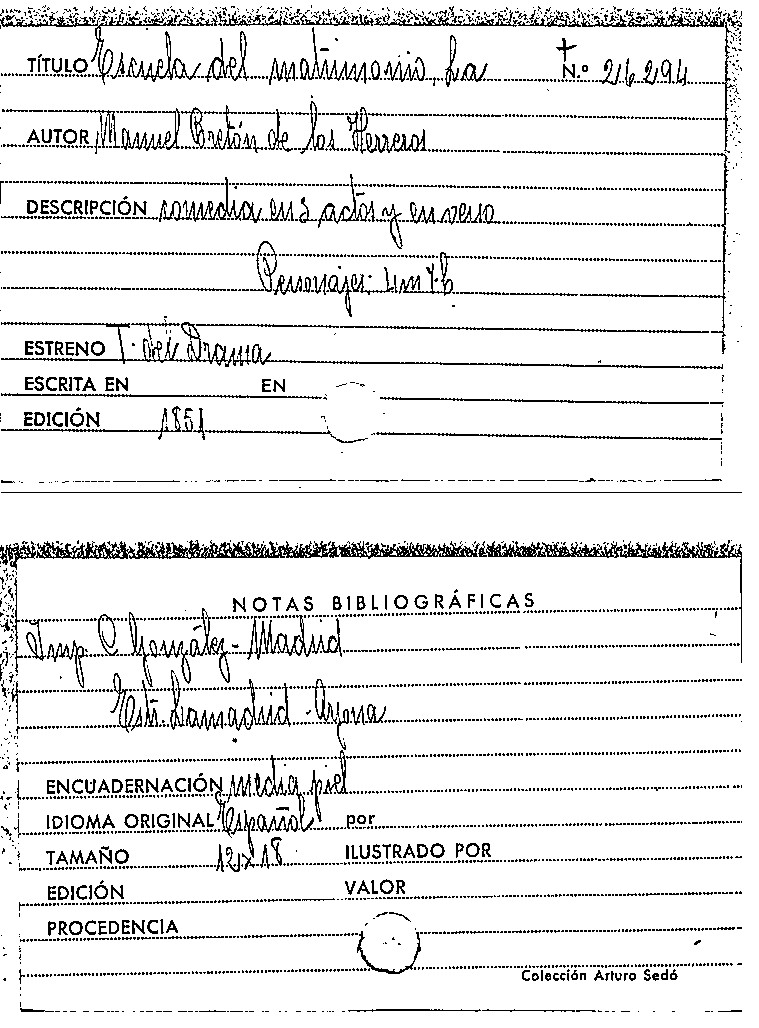 TÍTULO Escuela del matrimonio, La N.º 26294
AUTOR Manuel Bretón de los Herreros
DESCRIPCIÓN comedia en 3 actos y en verso
Personajes: 4m 7h
ESTRENO T. del Drama
ESCRITA EN EN
EDICIÓN 1851
NOTAS BIBLIOGRÁFICAS
Imp C González - Madrid
Estr. Lamadrid - Arjona
ENCUADERNACIÓN media piel
IDIOMA ORIGINAL Español por
TAMAÑO 12x18 ILUSTRADO POR
EDICIÓN VALOR
PROCEDENCIA
Colección Arturo Sedó